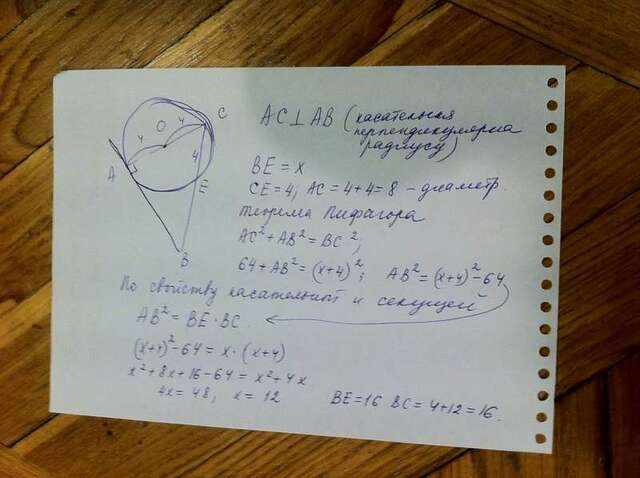 C
O
4 4
4
A
E
B
AC⊥AB (касательная
перпендикулярна
радиусу)
BE = x
CE = 4; AC = 4+4 = 8 - диаметр.
теорема Пифагора
AC² + AB² = BC²;
64 + AB² = (x+4)²; AB² = (x+4)² - 64
По свойству касательной и секущей
AB² = BE · BC
(x+4)² - 64 = x · (x+4)
x² + 8x + 16 - 64 = x² + 4x
4x = 48, x = 12
BE = 16 BC = 4+12 = 16.